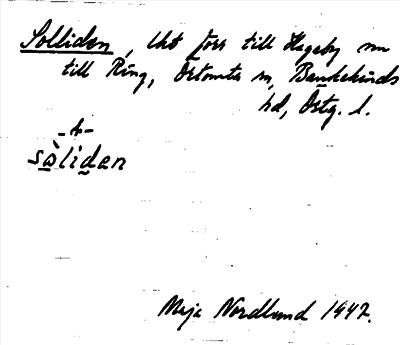 Solliden, lht förr till Hageby nu
till Ring, Östomta sn, Bankekinds
hd, Östg. l.
-t-
sòliden
Maja Nordlund 1947.